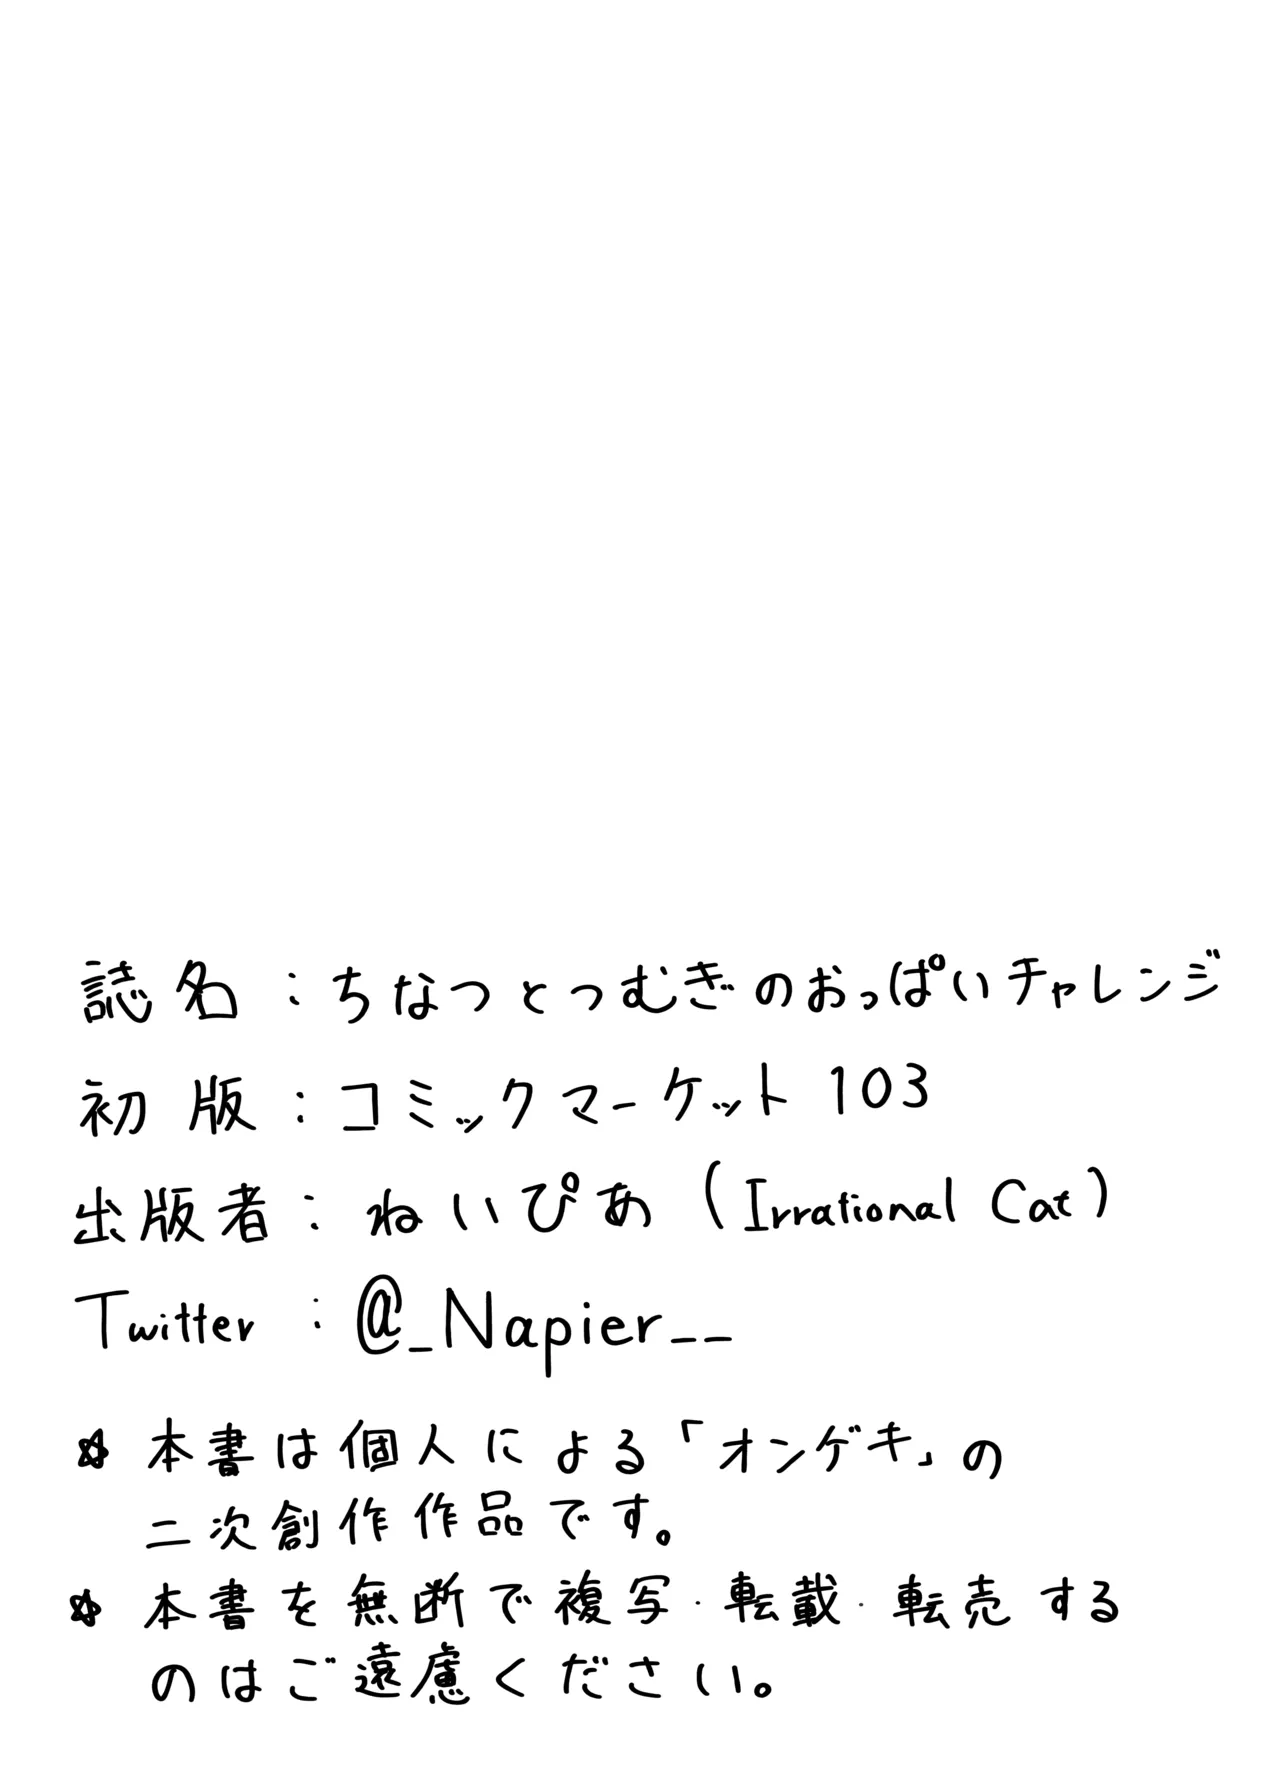 誌名：ちなつとつむぎのおっぱいチャレンジ
初版：コミックマーケット103
出版者：ねいぴあ（Irrational Cat）
Twitter：@_Napier__
☆ 本書は個人による「オンゲキ」の
二次創作作品です。
☆ 本書を無断で複写・転載・転売する
のはご遠慮ください。